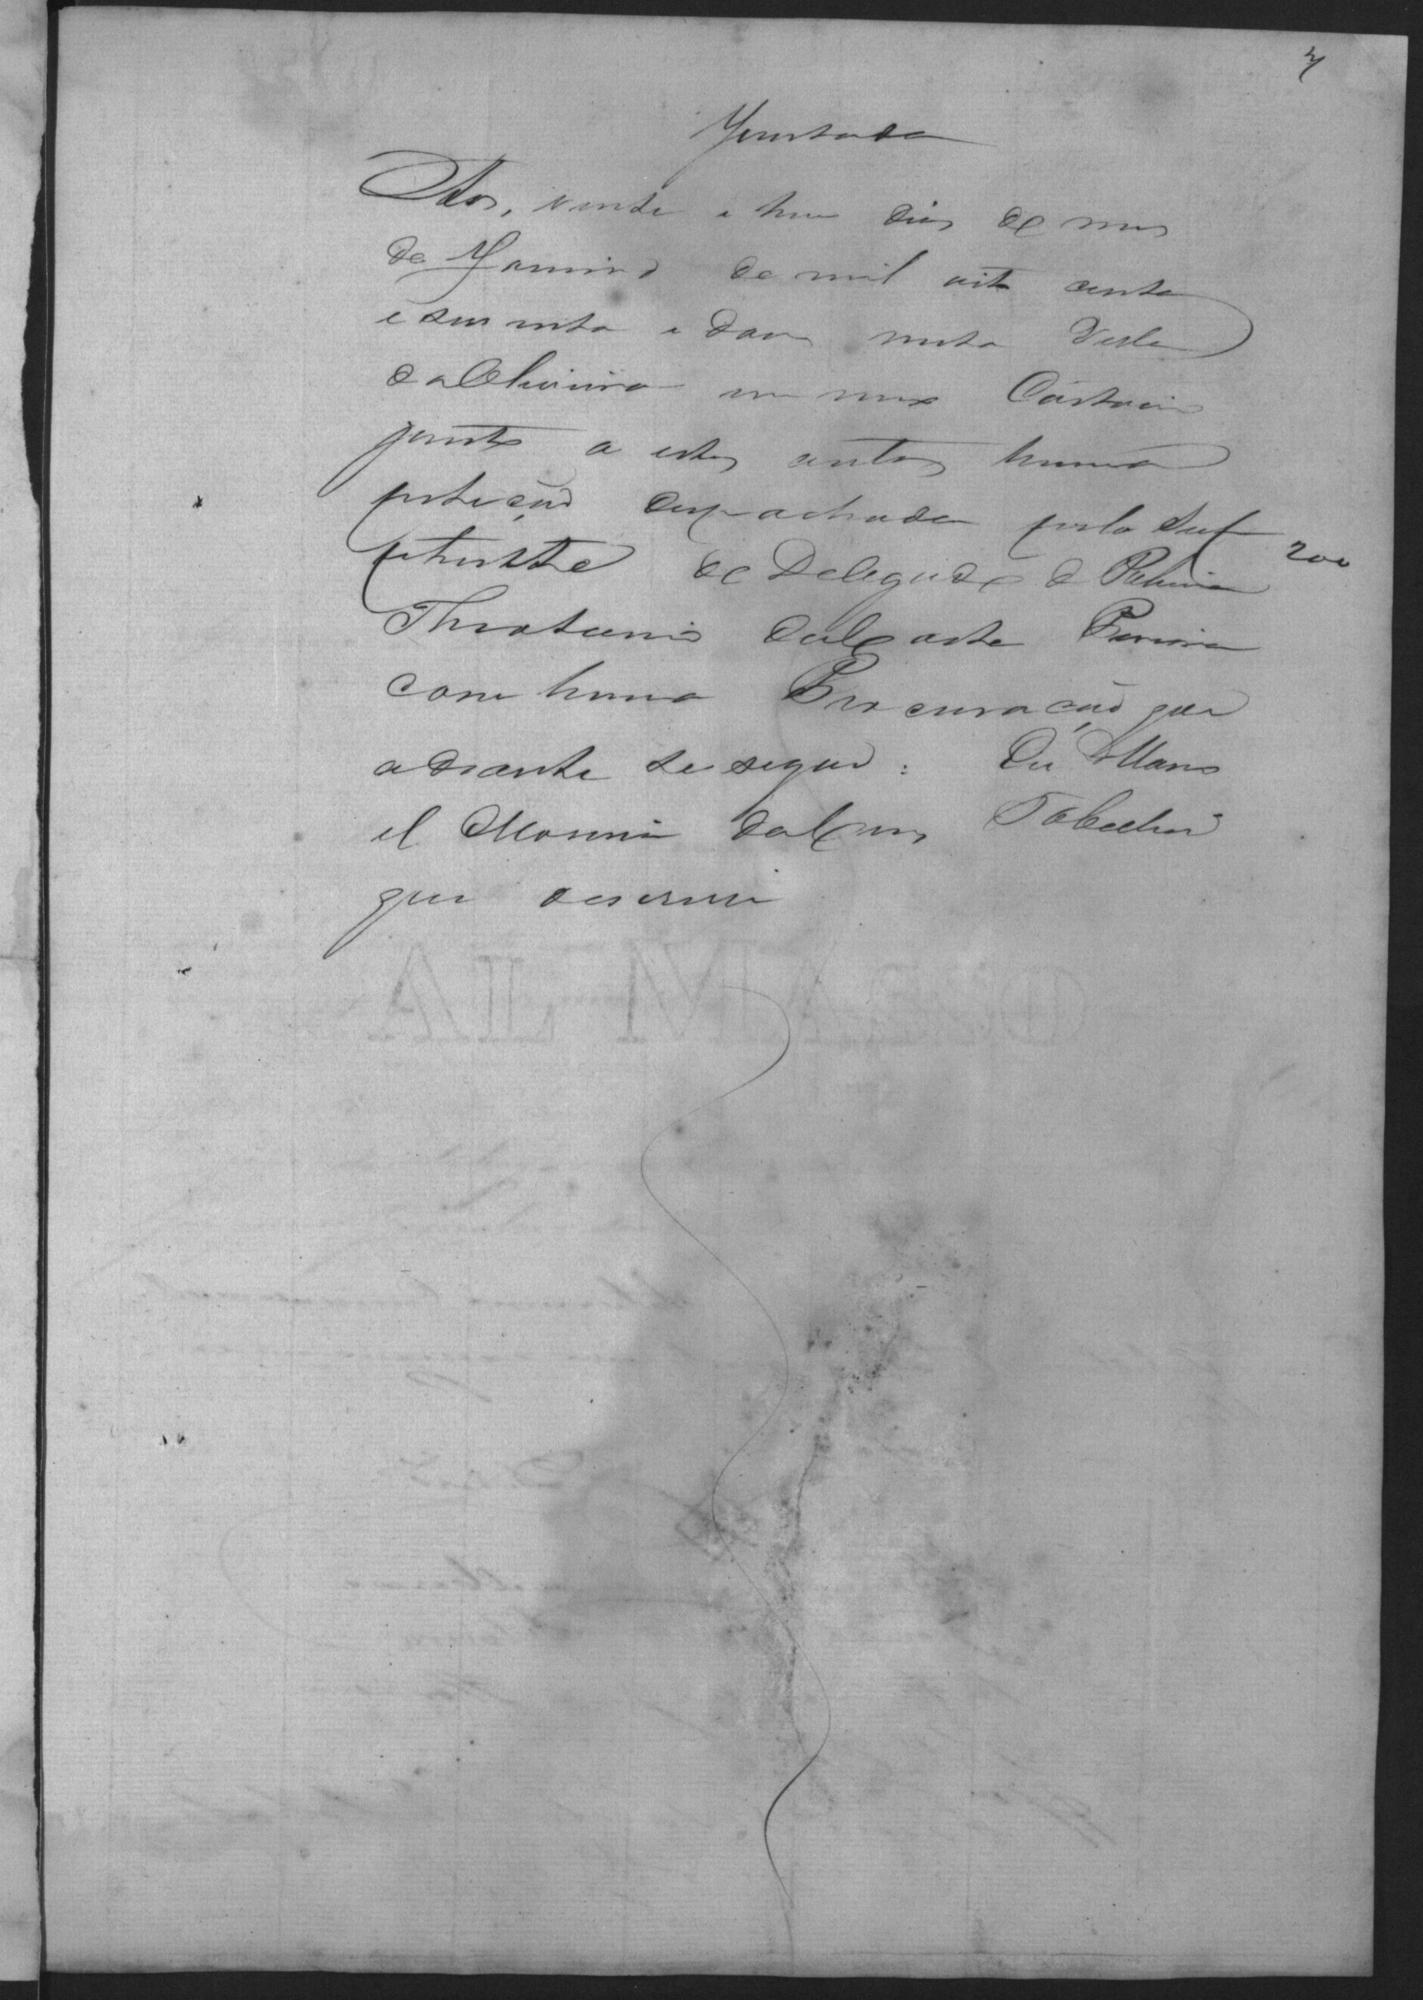 4
Yuntada
Aos, vinte e hum dias do mes
de Yaneiro de mil oito centos
e secenta e dous nesta Villa
da Oliveira em meu Cartorio
junto a estes autos huma
petição despachada pelo Sup
plente de Delegado de Policia
200
Theotonio
com huma Procuração que
adiante se segue: Eu Mano
el
Tabeliaõ
que escrevi